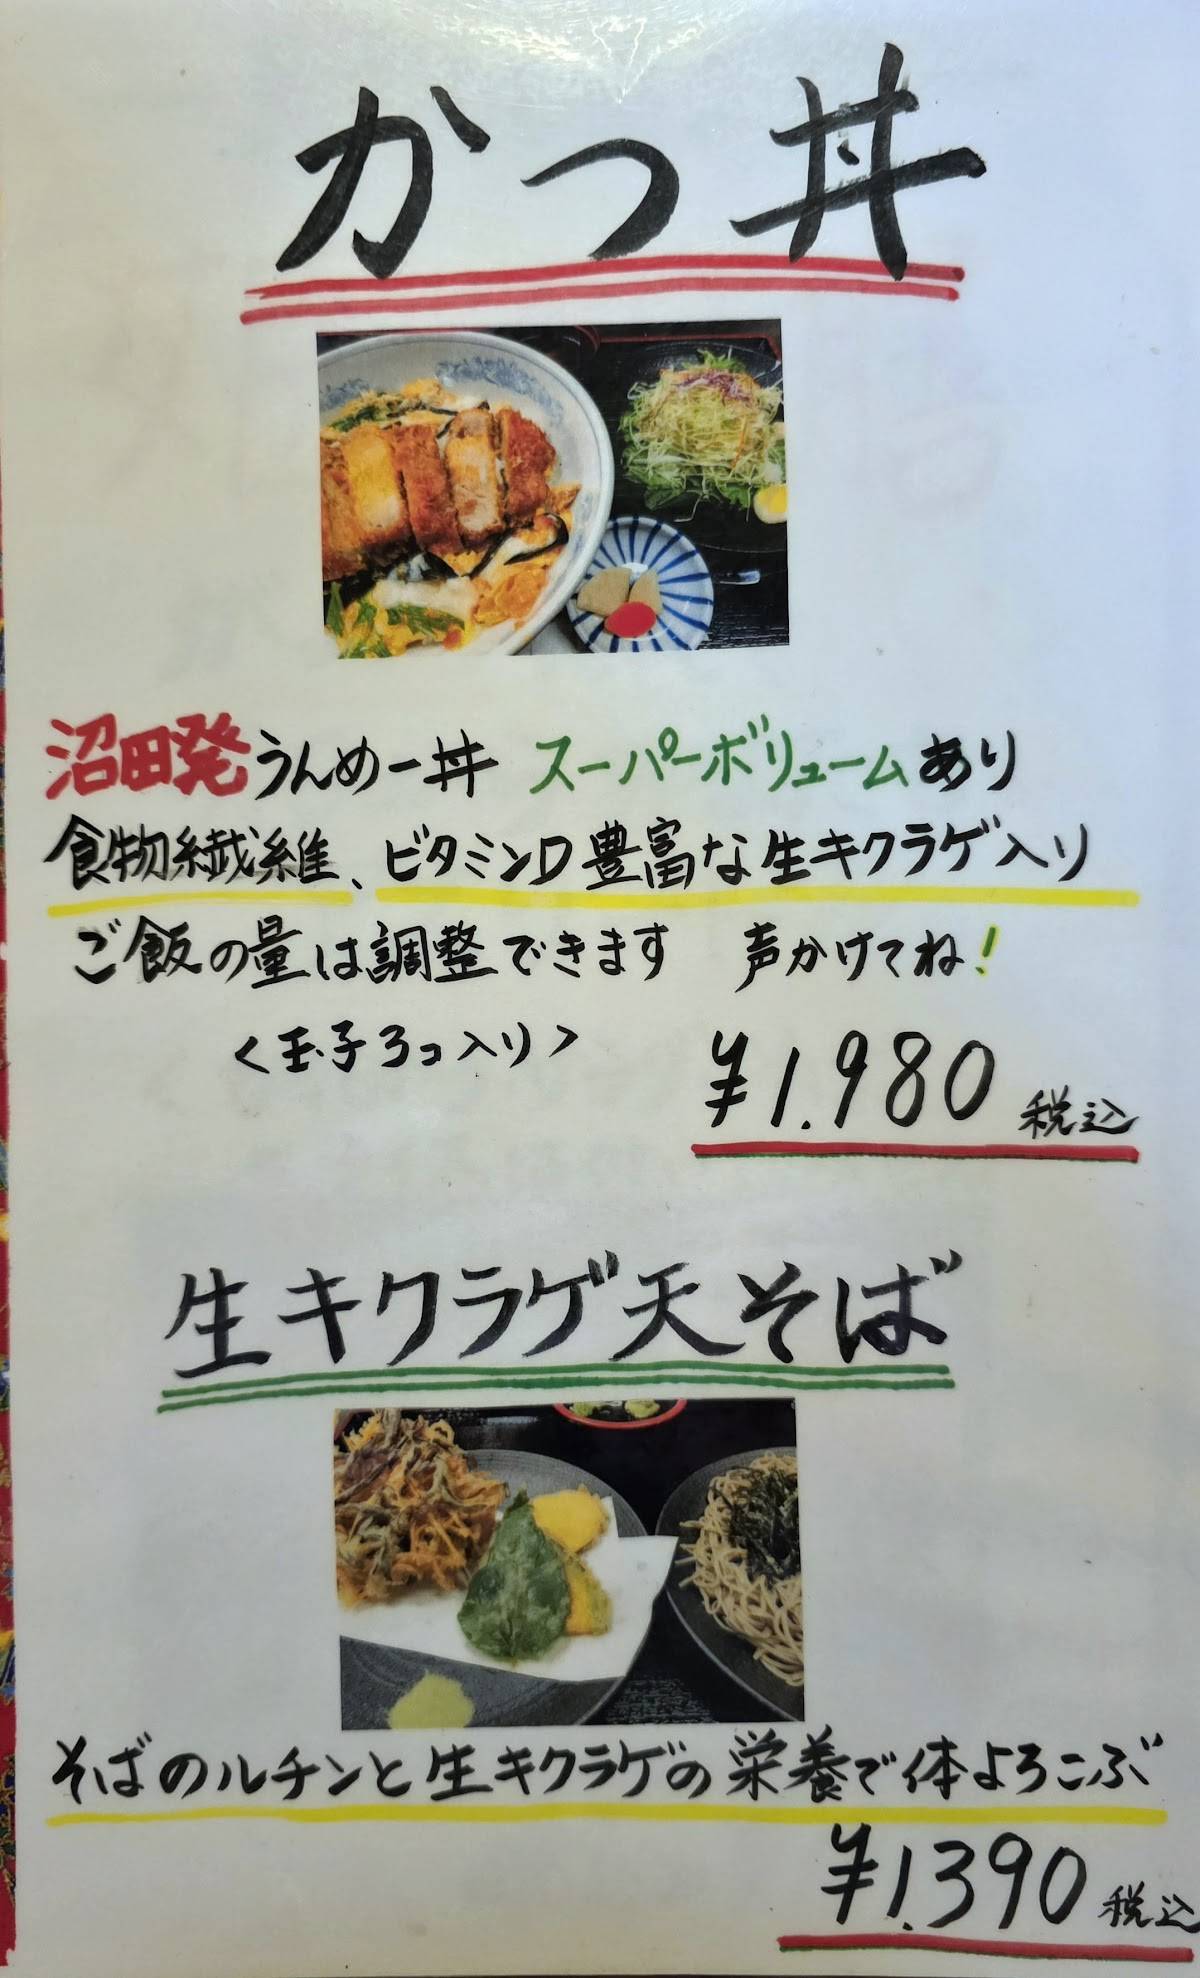 かつ丼
沼田発うんめー丼 スーパーボリュームあり
食物繊維、ビタミンD豊富な生キクラゲ入り
ご飯の量は調整できます 声かけてね!
<玉子3コ入り>
¥1.980 税込
生キクラゲ天そば
そばのルチンと生キクラゲの栄養で体よろこぶ
¥1.390 税込